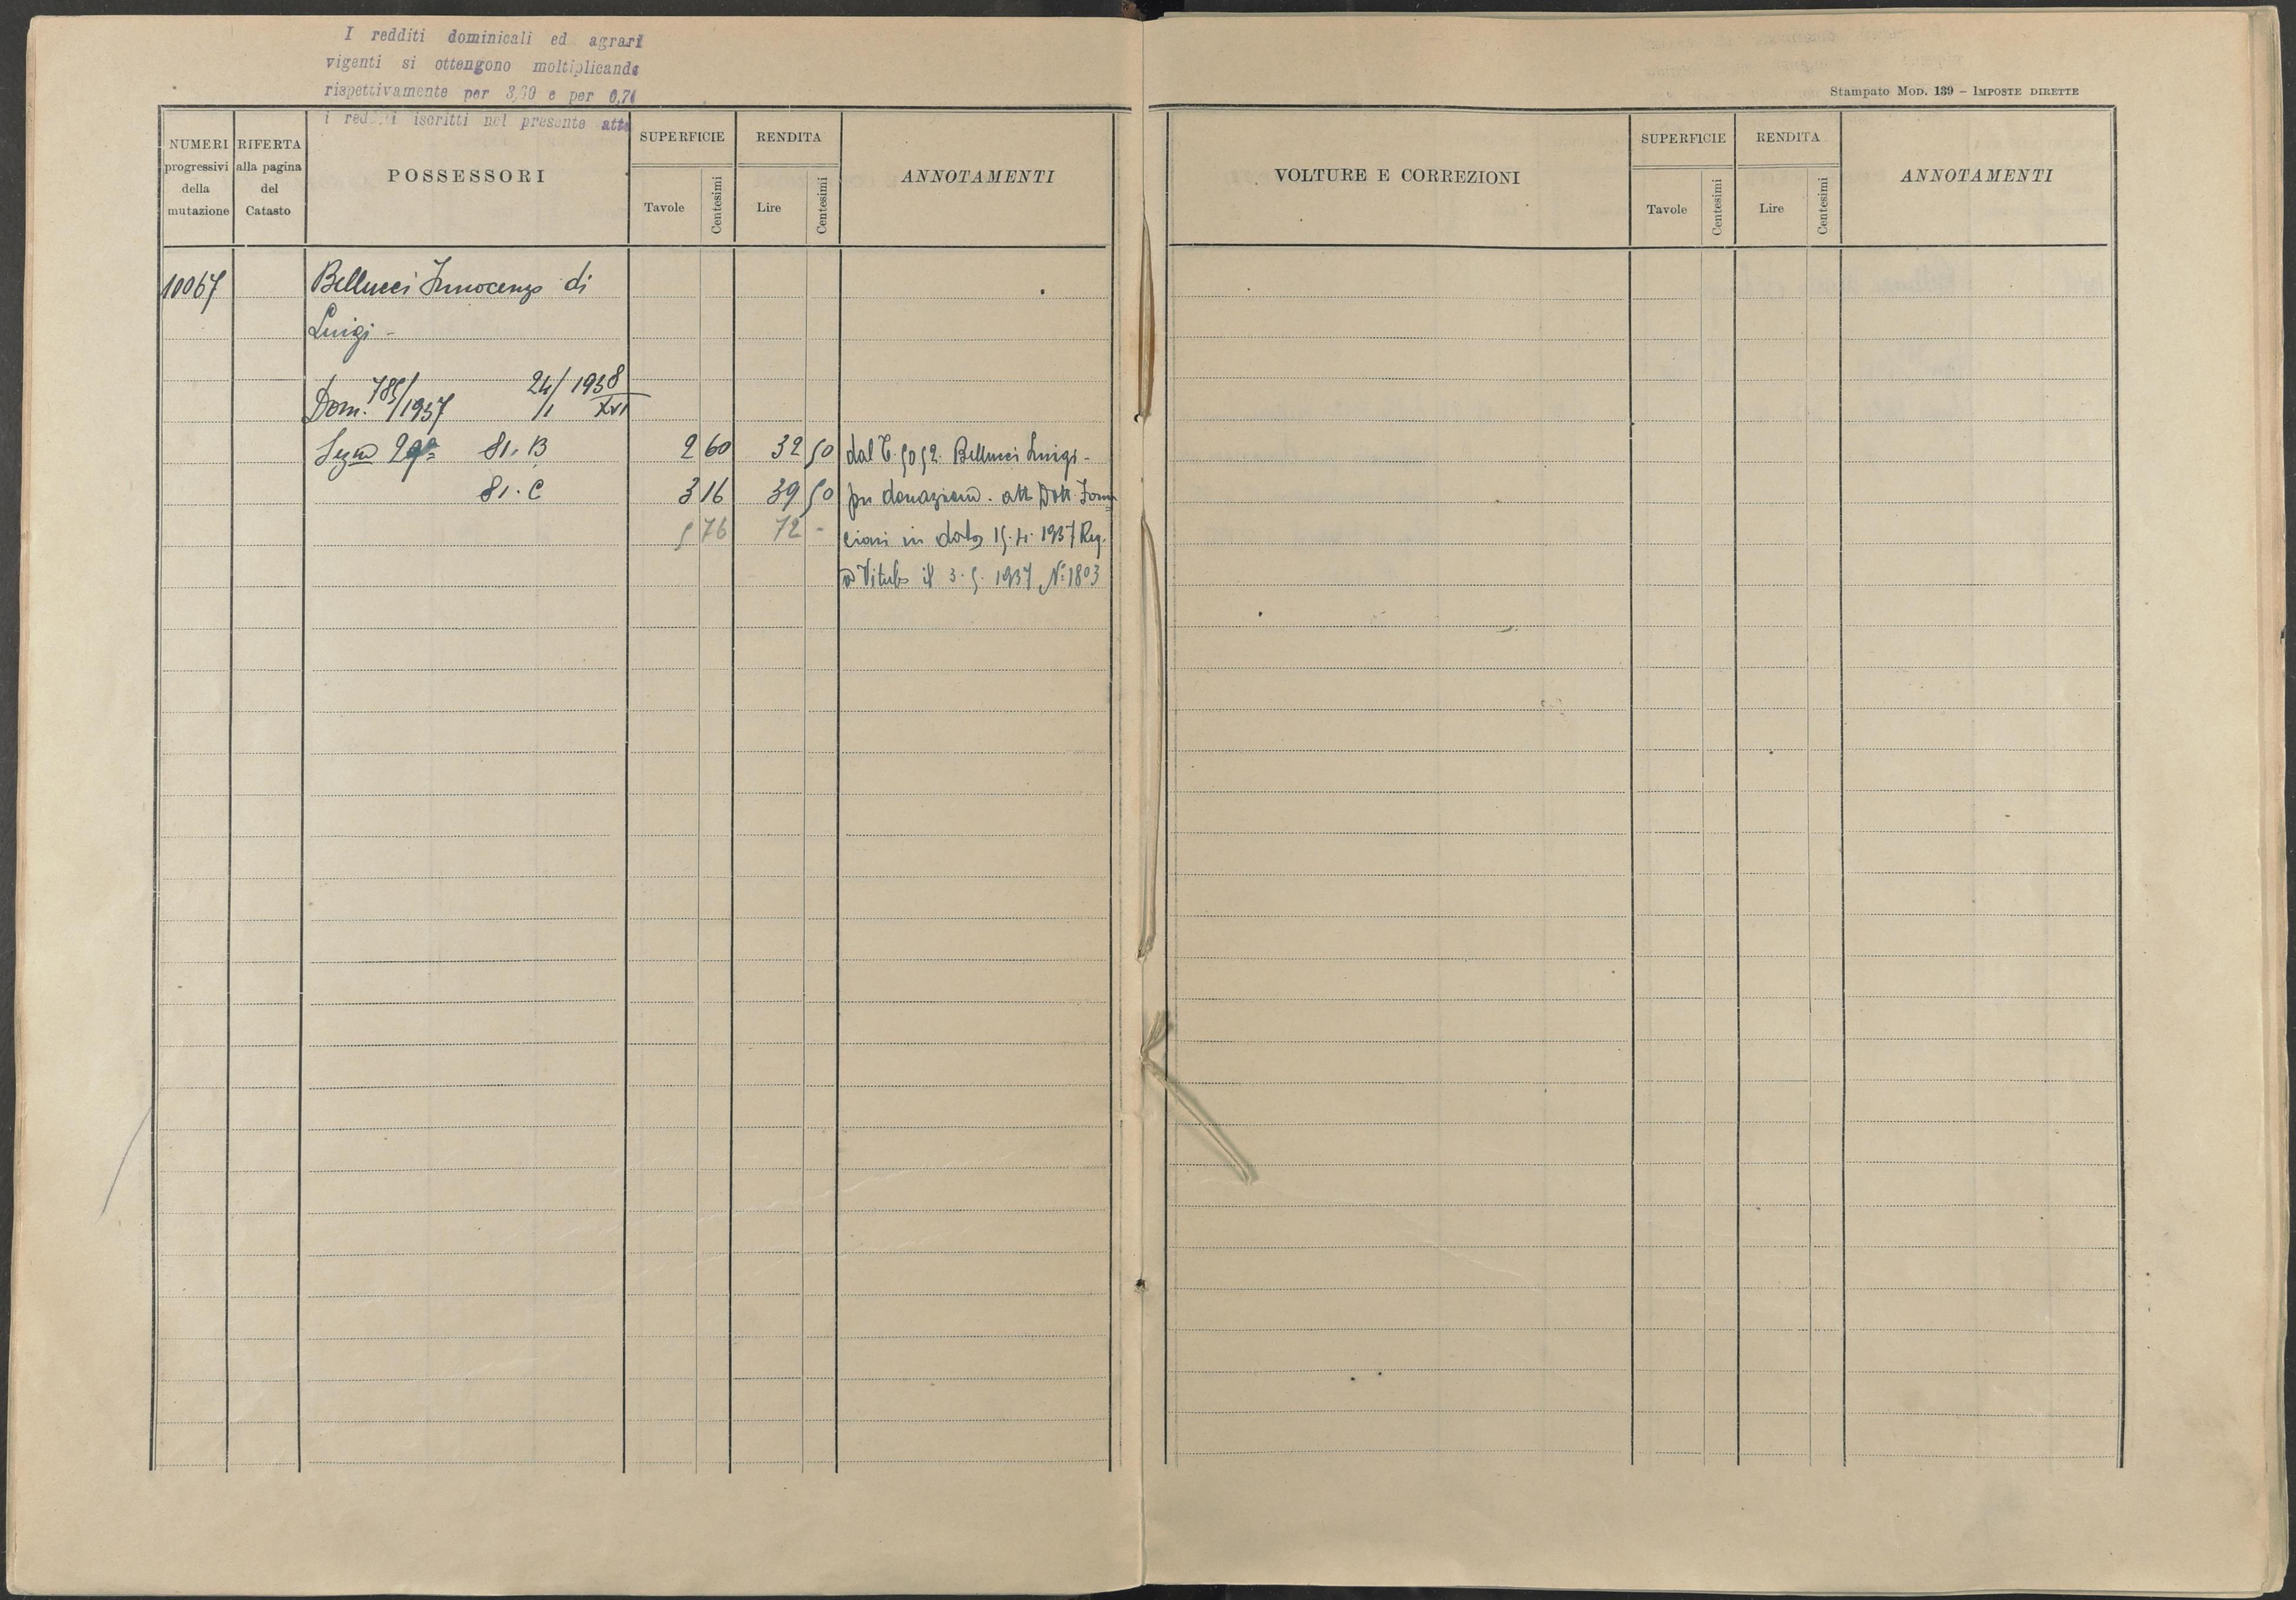 I redditi dominicali ed agrari
vigenti si ottengono moltiplicando
rispettivamente per 3,60 e per 0,7
i redditi iscritti nel presente atto
Stampato Mod. 139 – Imposte dirette
NUMERI progressivi della mutazione
RIFERTA alla pagina del Catasto
POSSESSORI
SUPERFICIE
Tavole
Centesimi
RENDITA
Lire
Centesimi
ANNOTAMENTI
VOLTURE E CORREZIONI
SUPERFICIE
Tavole
Centesimi
RENDITA
Lire
Centesimi
ANNOTAMENTI
10067 Bellucci Innocenzo di
Luigi -
Dom. 785/1937 24/1 1938 XVI
Sezne 29a 81. B 2 60 32 50 dal C. 5052. Bellucci Luigi -
81. C 3 16 39 50 per donazione. atto Dott.
5 76 72 - in data 15.4.1937 Reg.
a Viterbo il 3.5.1937 N. 1803